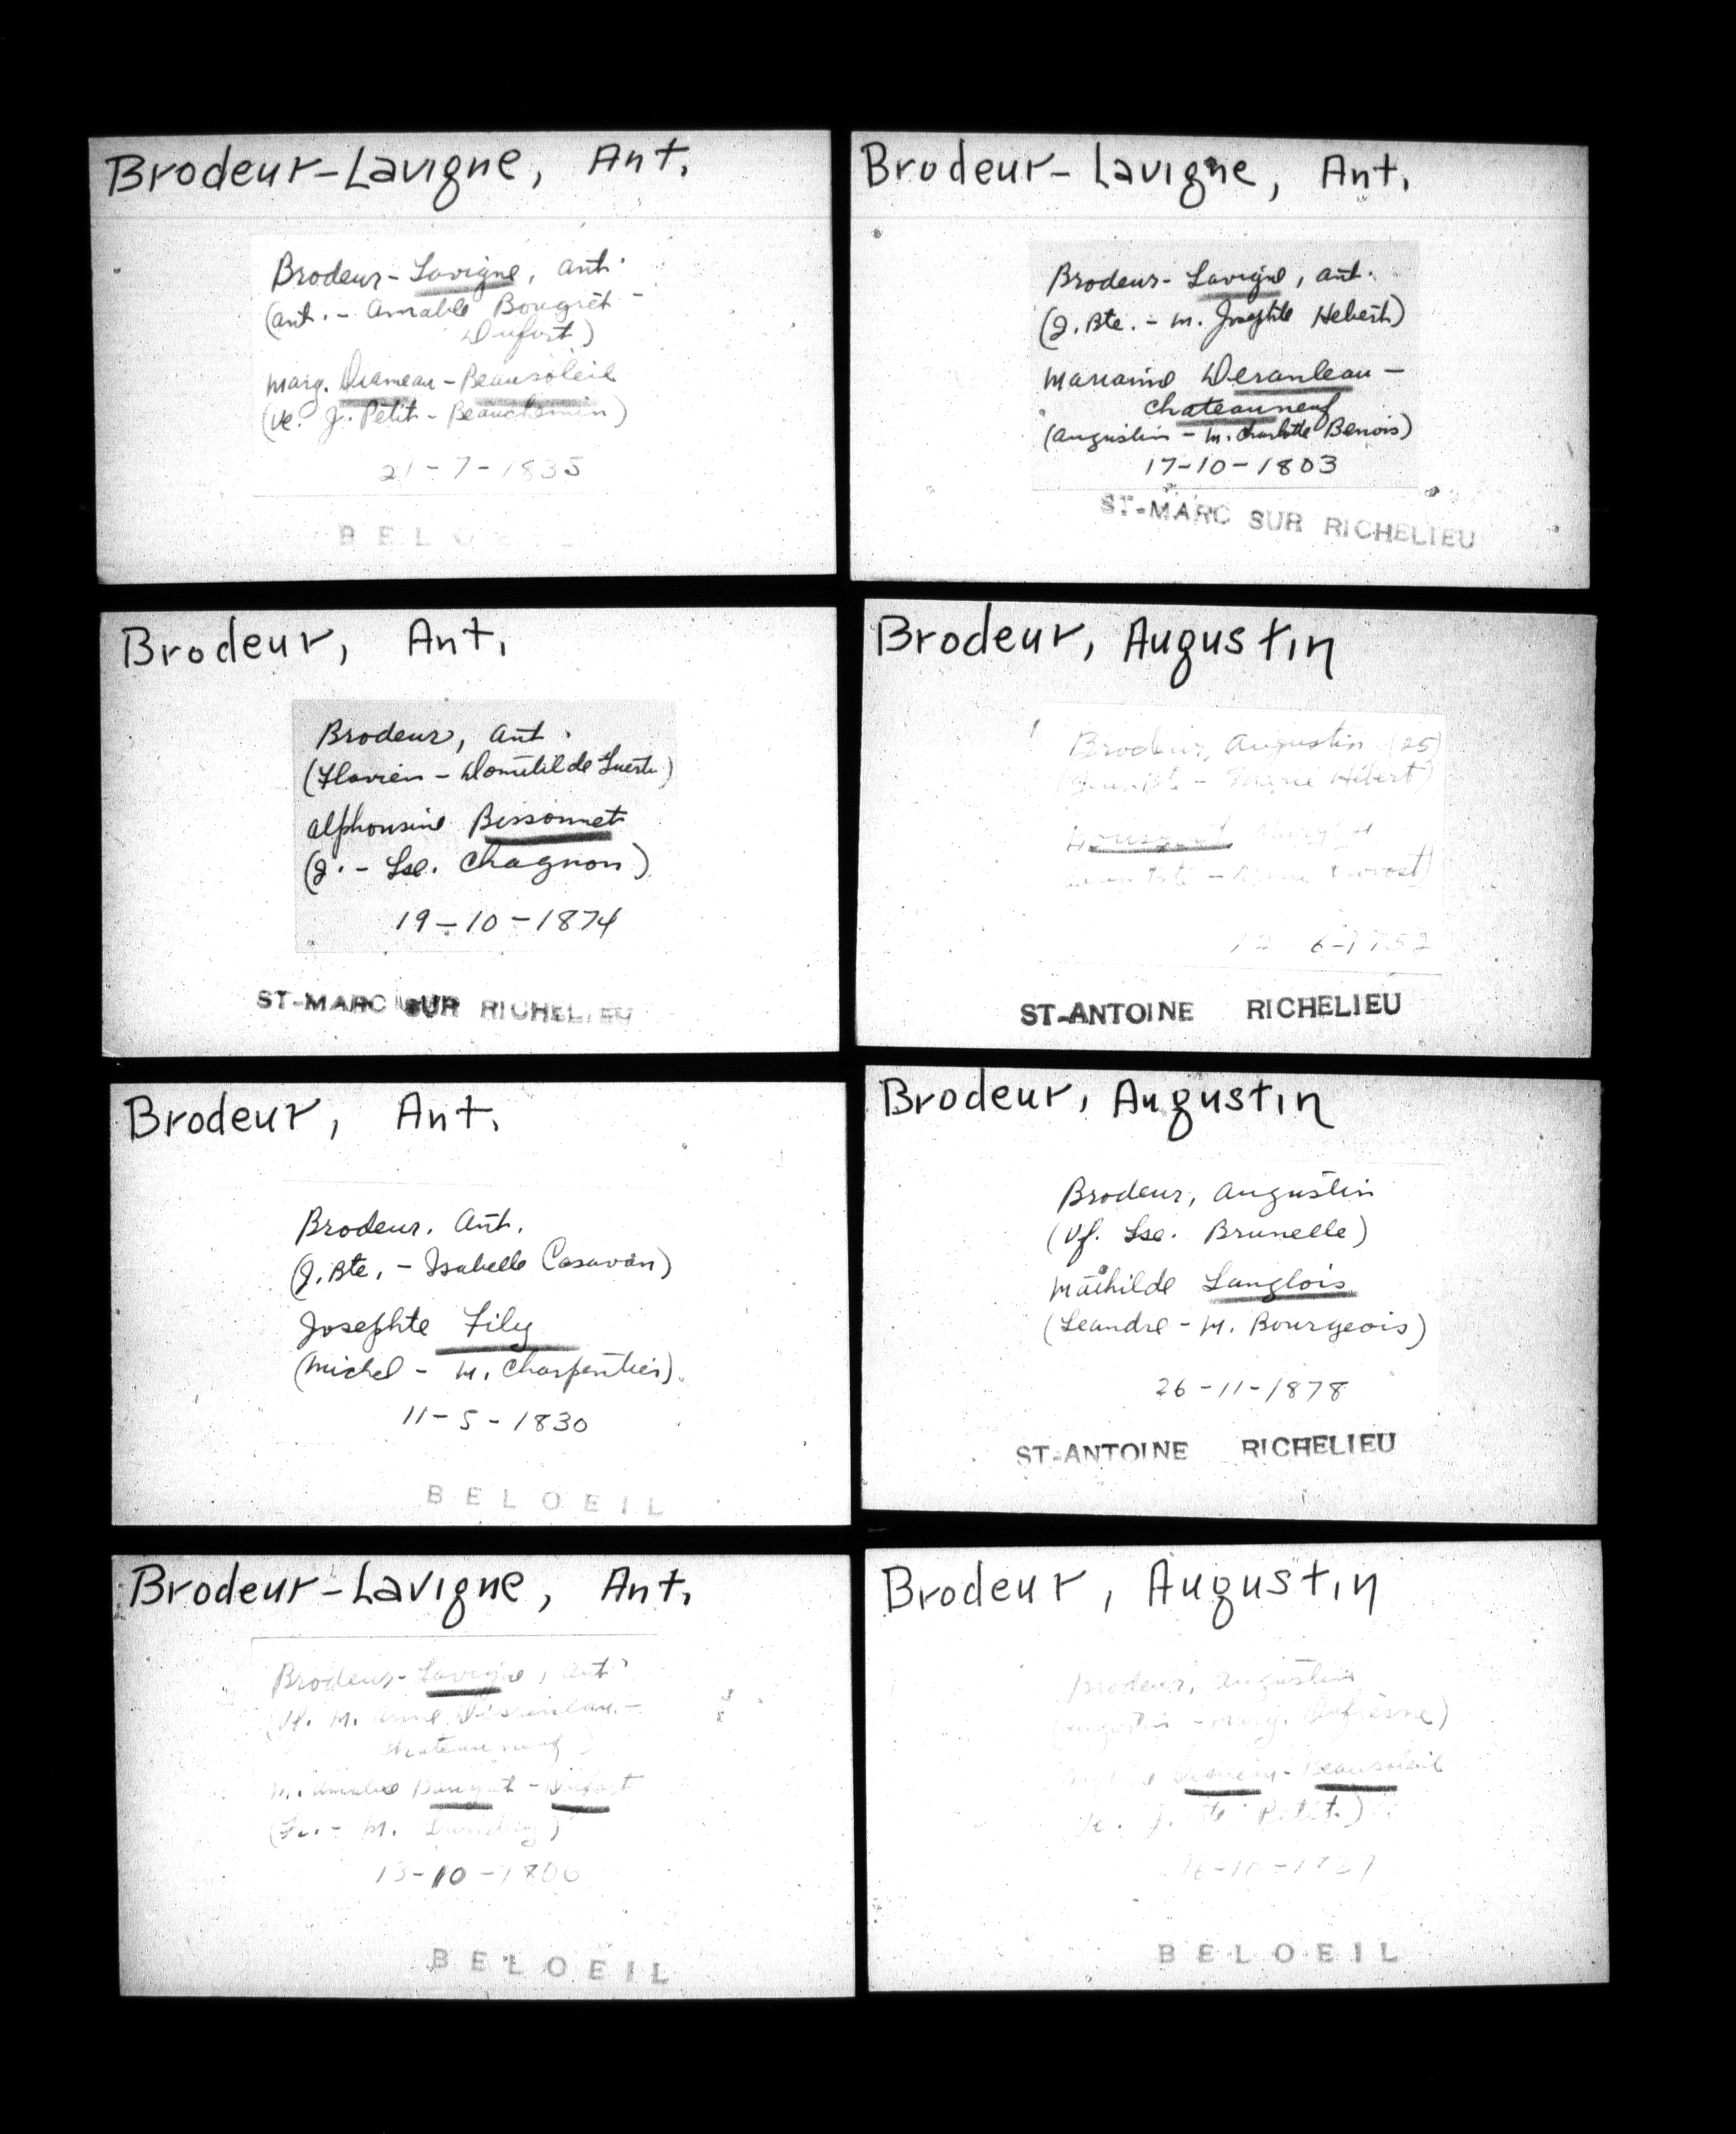 Brodeur-Lavigne, Ant.
Brodeur-Lavigne, ant.
(ant. - Amable Bougrèt -
Dufort)
Marg. Duameau - Beausoleil
(ve. J. Petit - Beauchemin)
21-7-1835
BELOE
Brodeur-Lavigne, Ant.
Brodeur-Lavigne, ant.
(J. Bte. - m. Josephte Hebert)
Marianne Deranleau -
Chateauneuf
(Augustin - m. Charlotte Benois)
17-10-1803
ST-MARC SUR RICHELIEU
Brodeur, Ant.
Brodeur, ant.
(Flavien - Domitilde
Alphonsine Bissonnet
(J. - Lse. Chagnon)
19-10-1874
ST-MARC SUR RICHELIEU
Brodeur, Augustin
Brodeur, Augustin (25)
Marie Hébert)
ST-ANTOINE RICHELIEU
Brodeur, Ant.
Brodeur, Ant.
(J. Bte. - Isabelle Casavan)
Josephte Fily
(Michel - M. Charpentier).
11-5-1830
BELOEIL
Brodeur, Augustin
Brodeur, Augustin
(Vf. Lse. Brunelle)
Mathilde Langlois
(Leandre - M. Bourgeois)
26-11-1878
ST-ANTOINE RICHELIEU
Brodeur-Lavigne, Ant.
Brodeur-Lavigne, ant
(Vf. M. Anne
M. Amable
13-10-1806
BELOEIL
Brodeur, Augustin
Brodeur, Augustin
(Augustin - Marg. Dufresne)
Beausoleil
Petit.)
BELOEIL